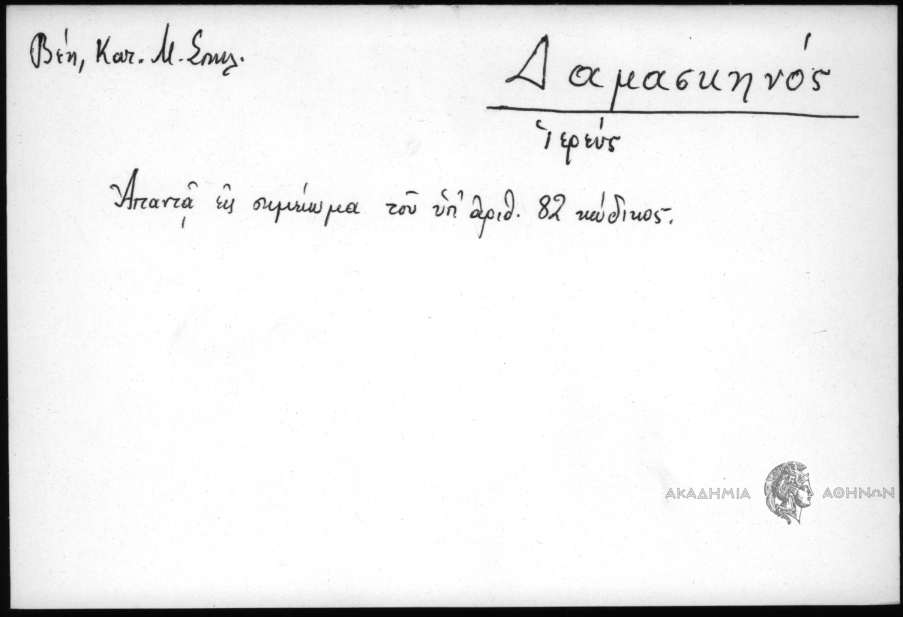 Βέη, Κατ. Μ. Σπηλ.
Δαμασκηνός
Ἱερεύς
Ἀπαντᾷ εἰς σημείωμα τοῦ ὑπ' ἀριθ. 82 κώδικος.
ΑΚΑΔΗΜΙΑ ΑΘΗΝΩΝ